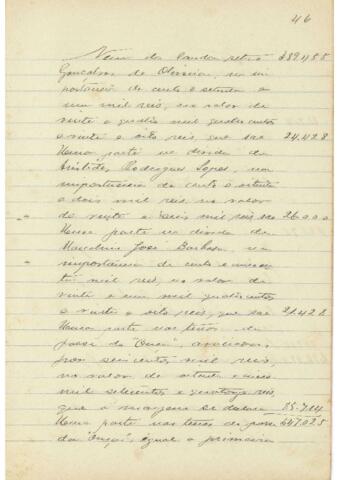 46
389.185
Gonçalves de Oliveira, na im
portancia de cento e setenta e
um mil reis, no valor de
vinte e quatro mil quatrocentos
e vinte e oito reis, que sae 24.428
Uma parte na divida de
Aristides Rodrigues Lopes, na
importancia de cento e oitenta
e dois mil reis no valor
de vinte e seis mil reis 26.000
Uma parte na divida de
Marcolino José Barbosa, na
importancia de cento e
mil reis, no valor de
vinte e um mil quatrocentos
e vinte e oito reis, que sae 21.428
Uma parte nas terras de
posse da
por seiscentos mil reis,
no valor de oitenta e cinco
mil setecentos e quatorze reis,
que a margem se 85.714
Uma parte nas terras de posse 647.025
da igual a primeira